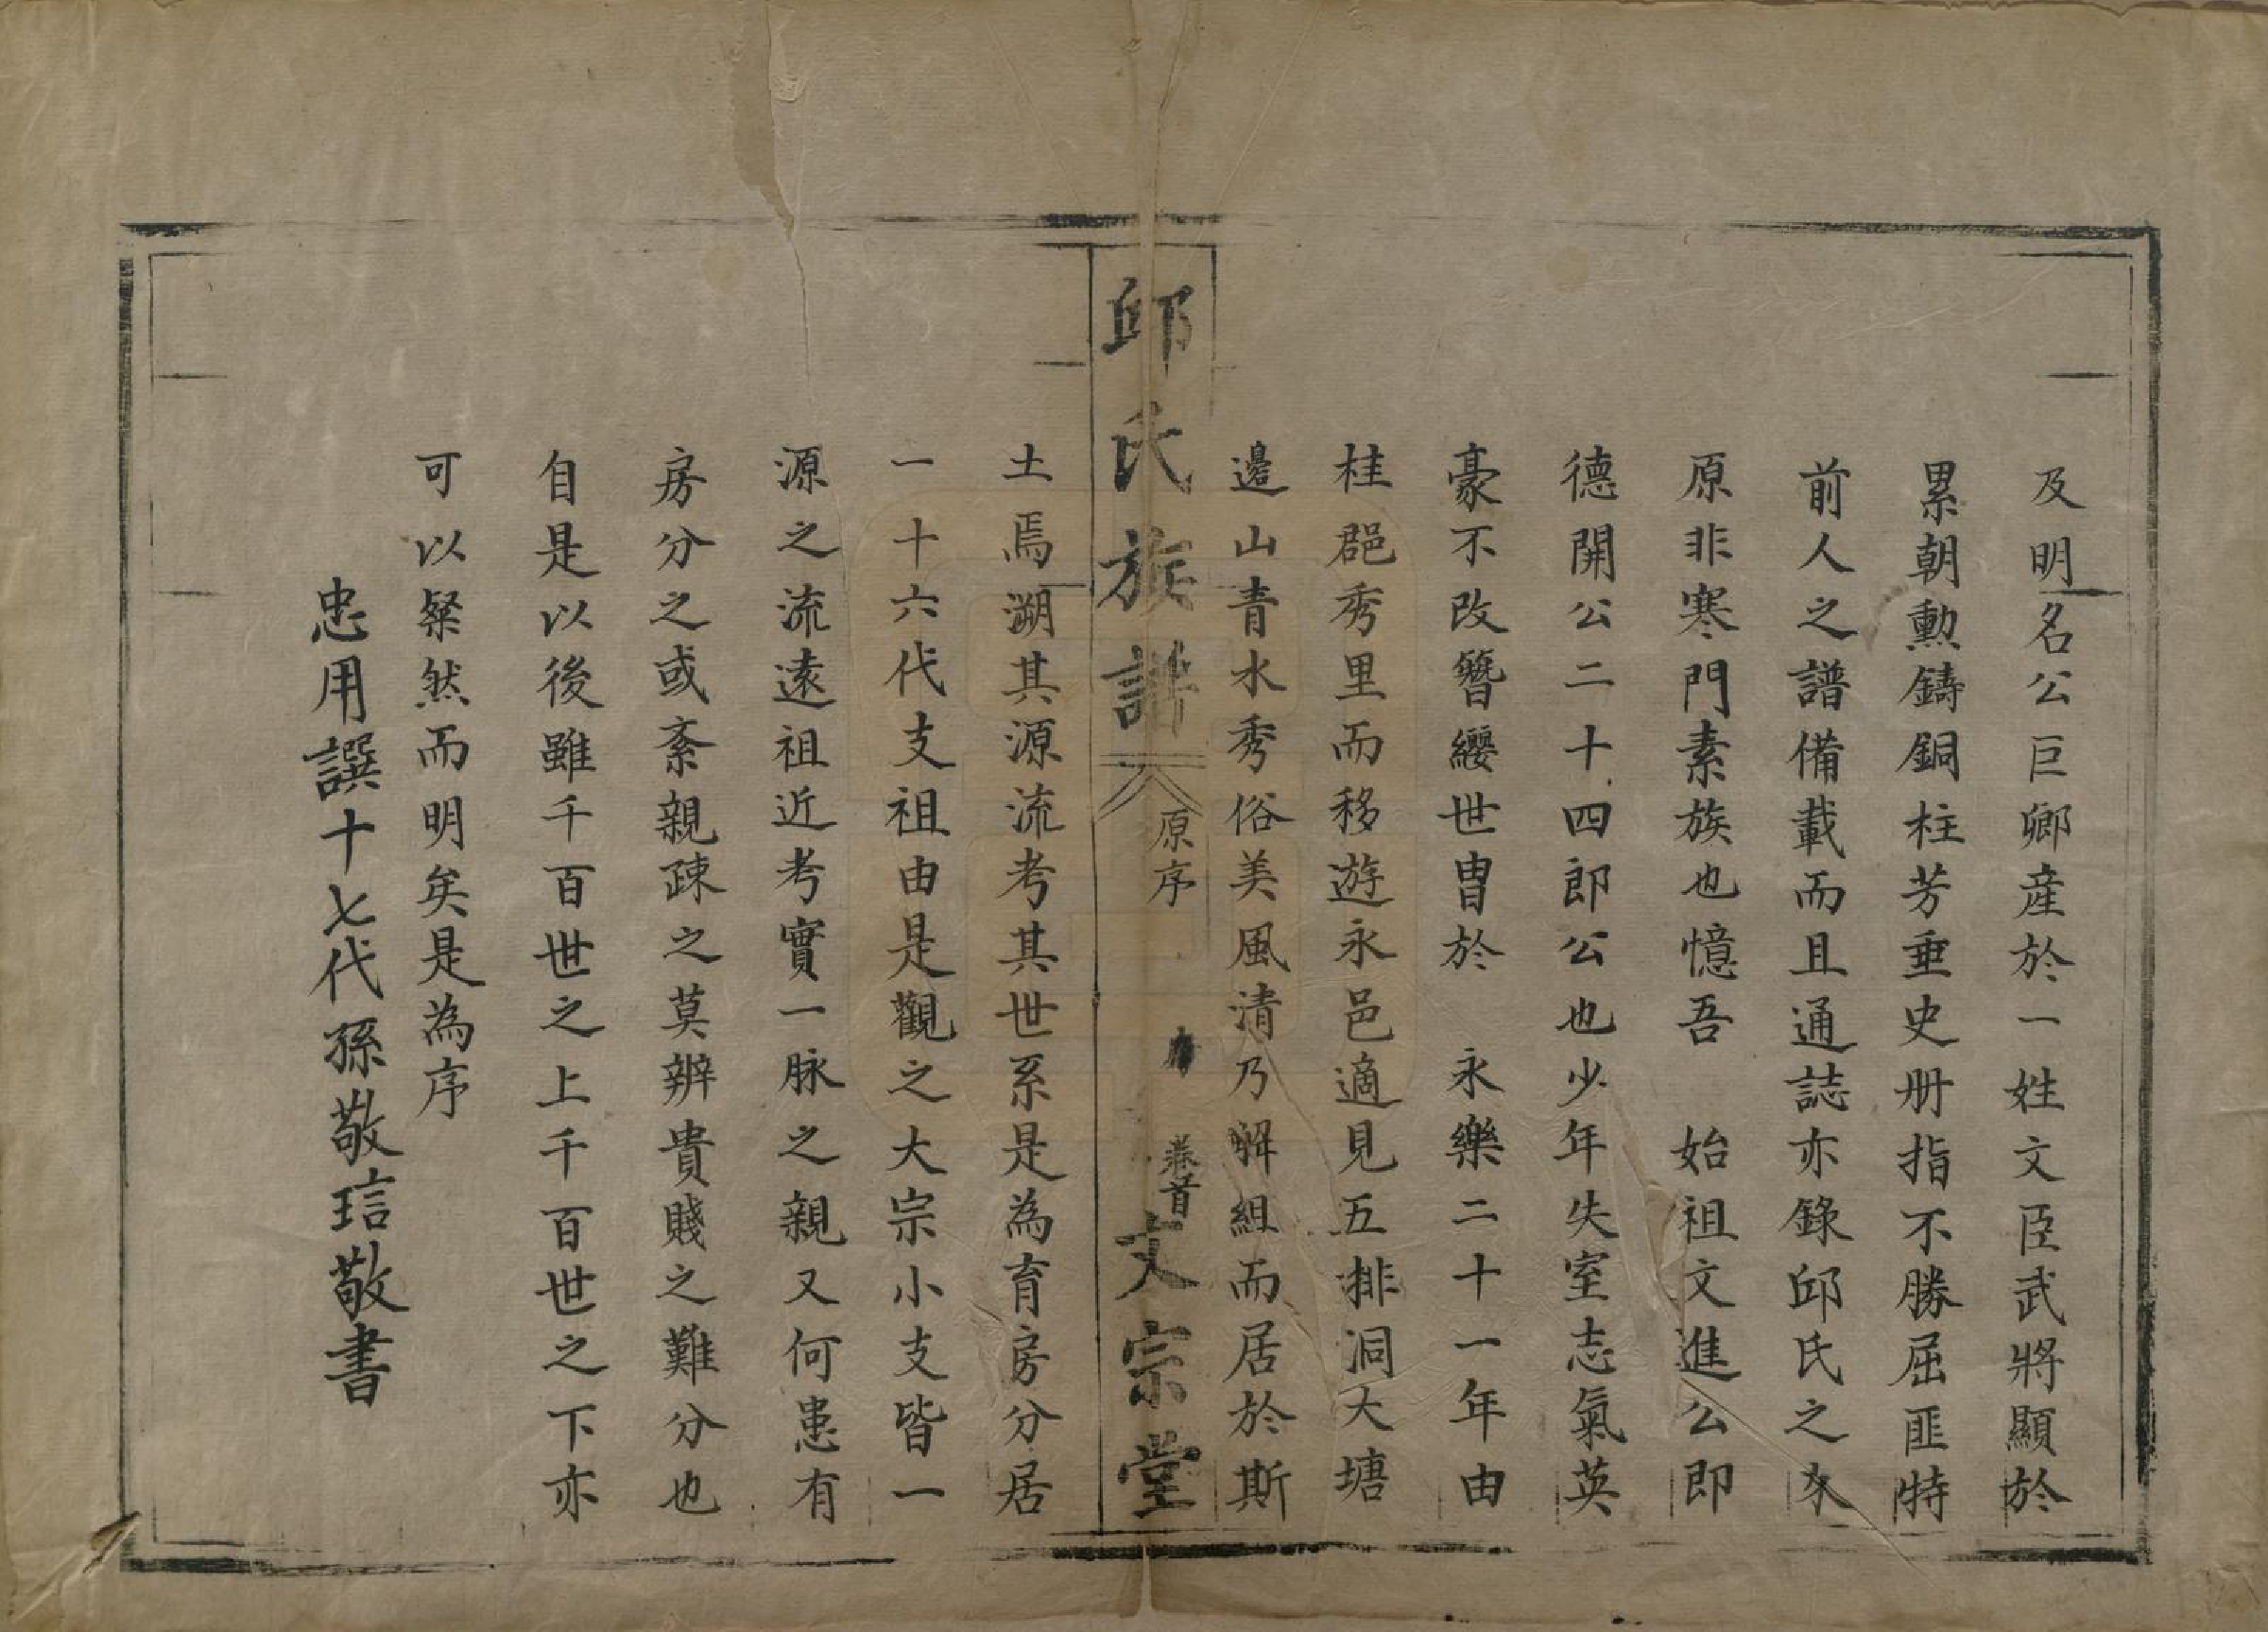 及明名公巨卿產於一姓文臣武將顯於
累朝勲鑄銅柱芳垂史册指不勝屈匪特
前人之譜備載而且通誌亦錄邱氏之來
原非寒門素族也憶吾　始祖文進公即
德開公二十四郎公也少年失室志氣英
豪不改簪纓世冑於　永樂二十一年由
桂郡秀里而移遊永邑適見五排洞大塘
邉山青水秀俗美風清乃觧組而居於斯
邱氏族譜　原序　卷首　文宗堂
土焉溯其源流考其世系是為育房分居
一十六代支祖由是觀之大宗小支皆一
源之流遠祖近考實一脉之親又何患有
房分之或紊親疎之莫辨貴賤之難分也
自是以後雖千百世之上千百世之下亦
可以粲然而明矣是為序
忠用譔十七代孫敬琂敬書